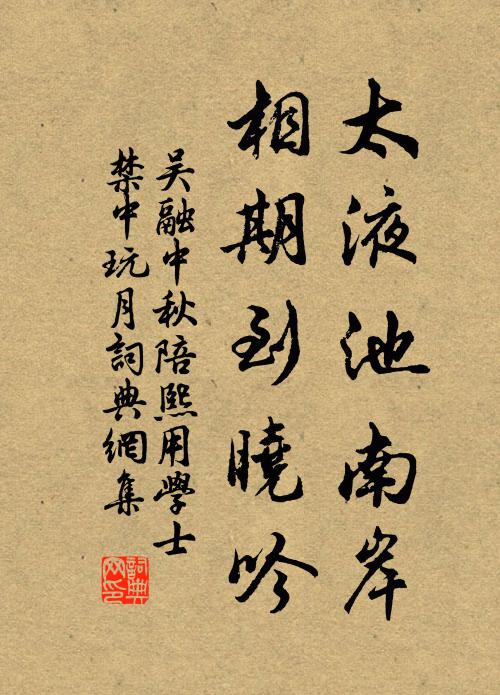 太液池南岸
相期到曉吟
吳融中秋陪熙用學士
禁中玩月詞典網集
詞典网印